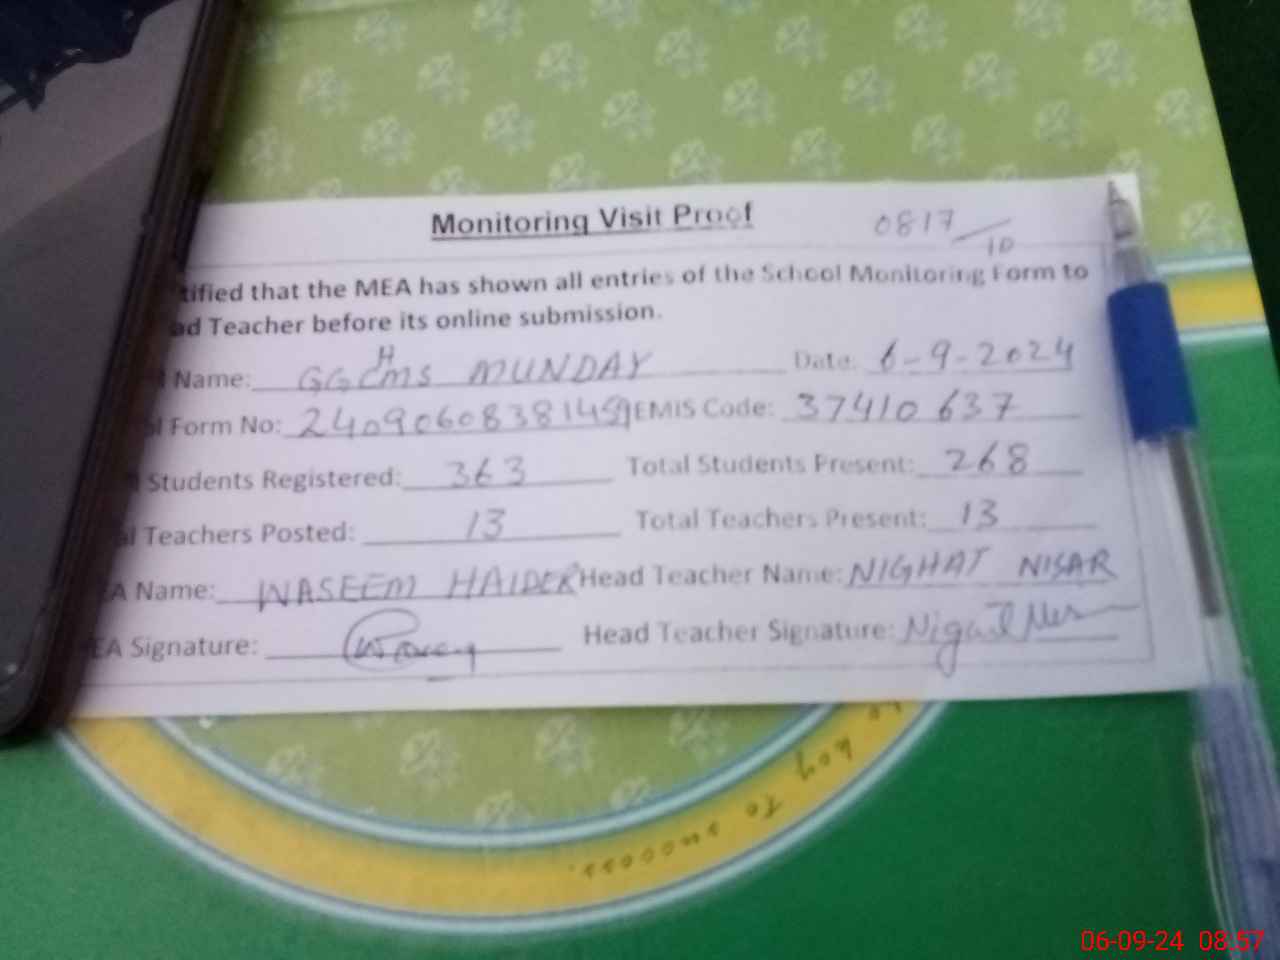 Monitoring Visit Proof 0817/10
tified that the MEA has shown all entries of the School Monitoring Form to
ad Teacher before its online submission.
Name: GGCMS MUNDAY Date: 6-9-2024
H
l Form No: 2409060838145 EMIS Code: 37410637
Students Registered: 363 Total Students Present: 268
al Teachers Posted: 13 Total Teachers Present: 13
A Name: WASEEM HAIDER Head Teacher Name: NIGHAT NISAR
EA Signature: Head Teacher Signature:
key to success.
06-09-24 08:57